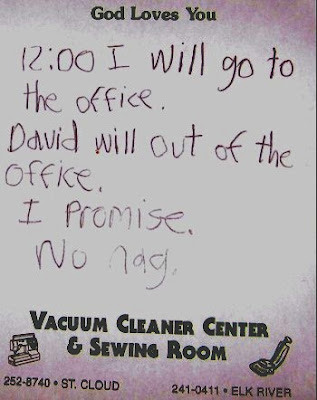 God Loves You
12:00 I will go to
the office.
David will out of the
office.
I Promise.
No nag.
VACUUM CLEANER CENTER
& SEWING ROOM
252-8740 • ST. CLOUD
241-0411 • ELK RIVER